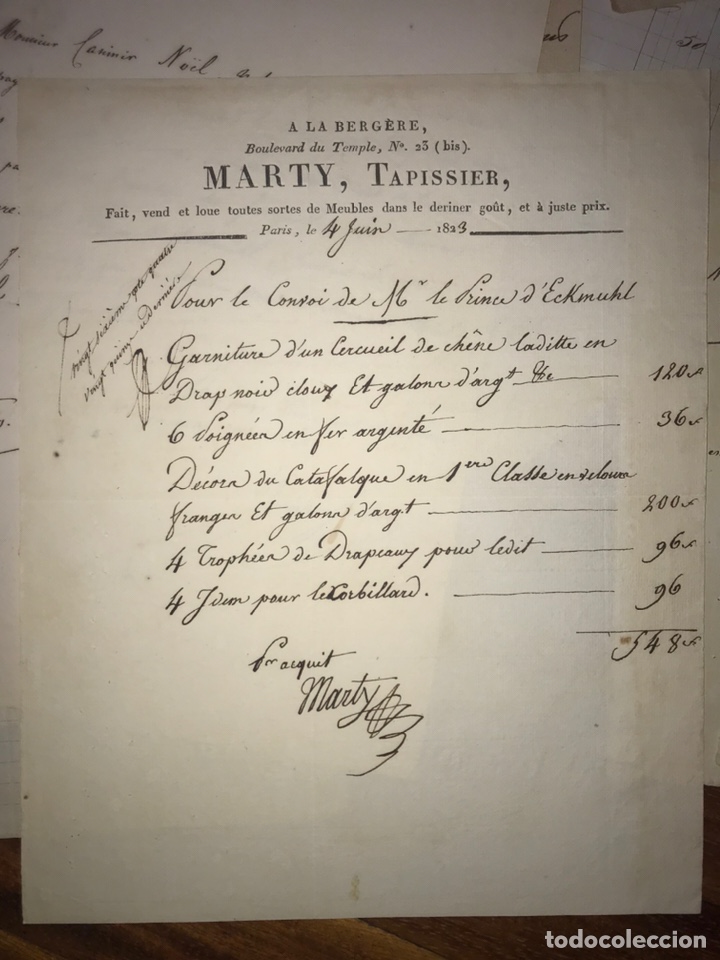 Monsieur Casimir Noël
50
A LA BERGÈRE,
Boulevard du Temple, No. 23 (bis).
MARTY, TAPISSIER,
Fait, vend et loue toutes sortes de Meubles dans le deriner goût, et à juste prix.
Paris, le 4 Juin 1823
vingt sixième
vingt
Pour le Convoi de Mr le Prince d'Eckmuhl
Garniture d'un Cercueil de chêne laditte en
Drap noir cloux Et galons d'argt &c 120 f
6 Poignées en fer argenté 36 f
Décors du Catafalque en 1ere Classe en velours
franges Et galons d'argt 200 f
4 Trophées de Drapeaux pour ledit 96 f
4 Idem pour le Corbillard. 96
548 f
Pr acquit
Marty
todocoleccion